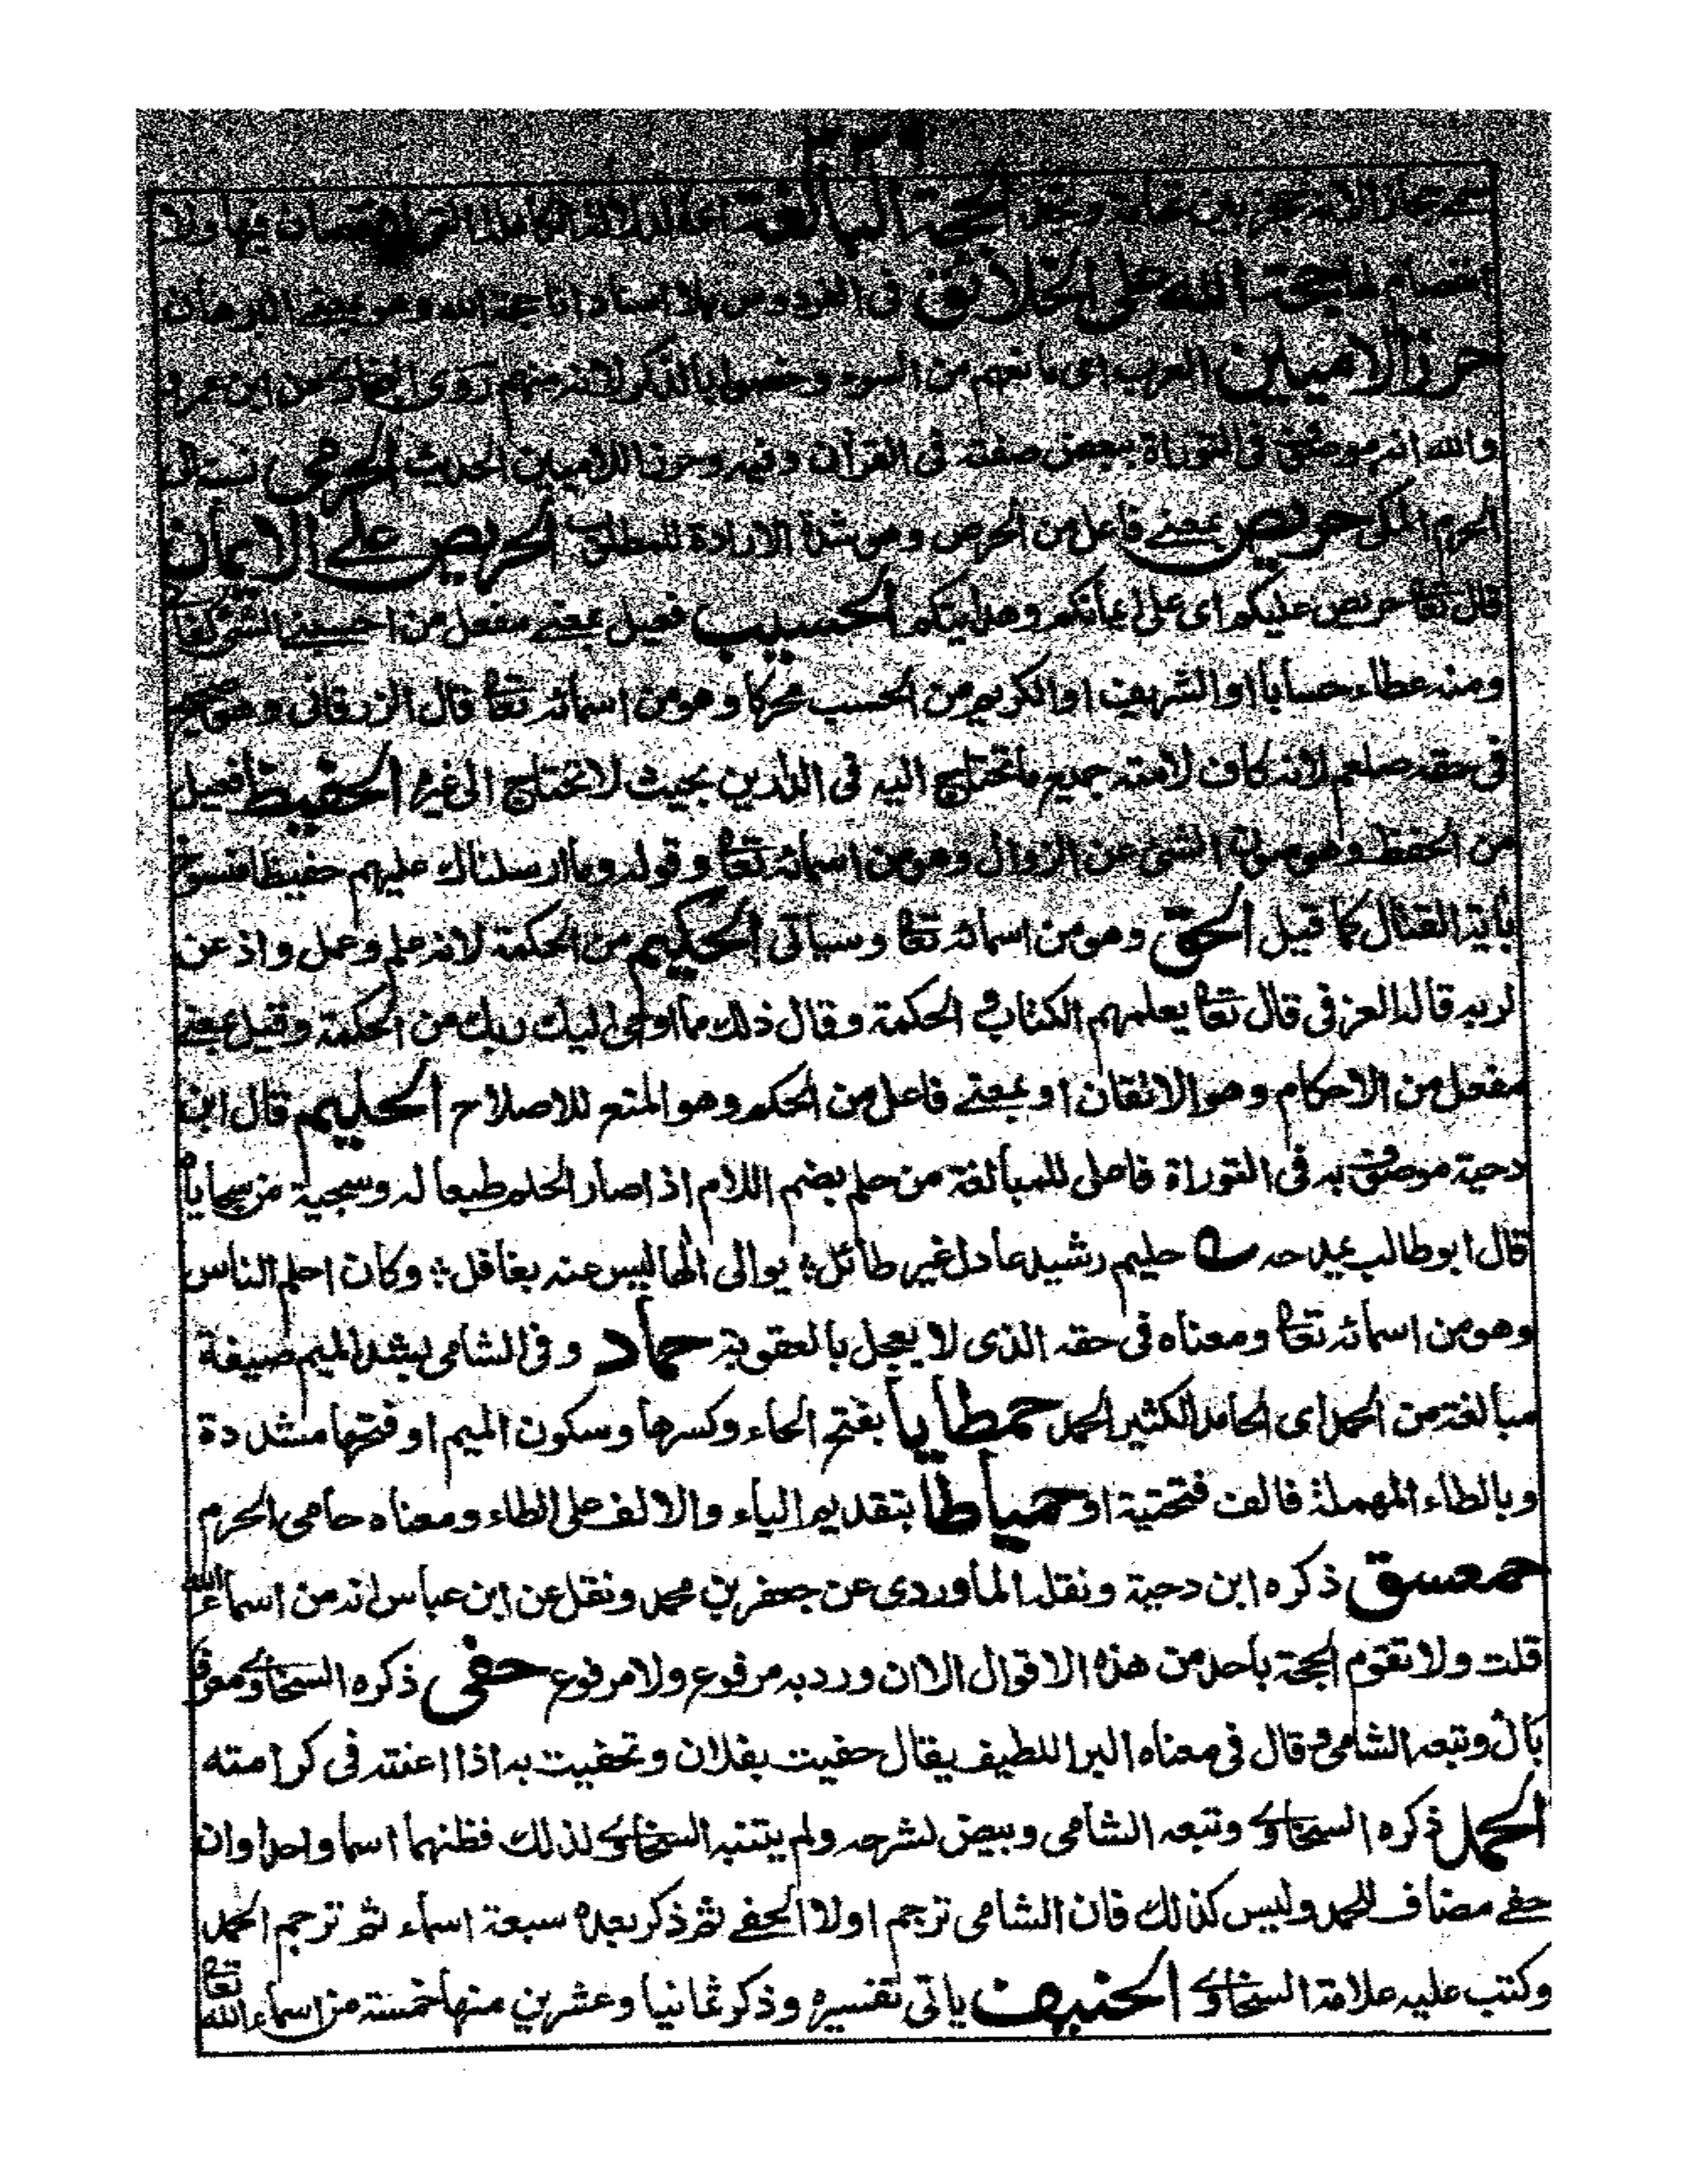 الحجة البالغة
لها حجة الله على الخلائق فى الفردوس بلا اسناد انا حجة الله وهو بمعنے البرهان
حرز الاميين العرب اى مانعهم من السوء وخصوا بالذكر لانه منهم روى عن ابن عمرو
والله انه موصوف فى التوراة ببعض صفته فى القرآن وفيه وحرزا للاميين الحديث الحرمى نسبة الى
الحرم المكى حريص بمعنے فاعل من الحرص وهو شدة الارادة للمطلوب الحريص علے الايمان
قال تعالى حريص عليكم اى على ايمانكم وهدايتكم الحسيب فعيل بمعنے مفعل من
ومنه عطاء حسابا او الشريف او الكريم من الحسب محركا وهو من اسمائه تعالى قال الزرقانى وهو صحيح
فى حقه صلعم لانه كاف لامته جميع ما تحتاج اليه فى الدارين بحيث لا تحتاج الى غيره الحفيظ فعيل
من الحفظ وهو صون الشئ عن الزوال وهو من اسمائه تعالى وقوله وما ارسلناك عليهم حفيظا منسوخ
باية القتال كما قيل الحق وهو من اسمائه تعالى وسياتى الحكيم من الحكمة لانه علم وعمل واذعن
لربه قاله العزفى قال تعالى يعلمهم الكتاب و الحكمة وقال ذلك مما اوحى اليك ربك من الحكمة وقيل بمعنے
مفعل من الاحكام وهو الاتقان او بمعنے فاعل من الحكم وهو المنع للاصلاح الحليم قال ابن
دحية موصوف به فى التوراة فاعلى للمبالغة من حلم بضم اللام اذا صار الحلم طبعا له وسجية من سجاياه
قال ابو طالب يمدحه حليم رشيد عادل غير طائل يوالى الها ليس عنه بغافل وكان احلم الناس
وهو من اسمائه تعالى ومعناه فى حقه الذى لا يعجل بالعقوبة حماد وفى الشامى بشد الميم صيغة
مبالغة من الحمد اى الحامد الكثير الحمد حمطايا بفتح الحاء وكسرها وسكون الميم او فتحها مشددة
وبالطاء المهملة فالف فتحتية او حمياطا بتقديم الياء والالف على الطاء ومعناه حامى الحرم
حمعسق ذكره ابن دحية ونقله الماوردى عن جعفر بن محمد ونقل عن ابن عباس انه من اسماء الله
قلت ولا تقوم الحجة باحد من هذه الاقوال الا ان ورد به مرفوع ولا مرفوع حفى ذكره السخاوى معرفا
بال وتبعه الشامى و قال فى معناه البر اللطيف يقال حفيت بفلان وتحفيت به اذا اعتنته فى كرامته
الحمد ذكره السخاوى وتبعه الشامى وبيض لشرحه ولم يتنبه السخاوى لذلك فظنهما اسما واحدا وان
حفے مضاف للحمد وليس كذلك فان الشامى ترجم اولا الحفے ثم ذكر بعده سبعة اسماء ثم ترجم الحمد
وكتب عليه علامة السخاوى الحنيف ياتى تفسيره وذكر ثمانيا وعشرين منها خمسة من اسماء الله تعالى